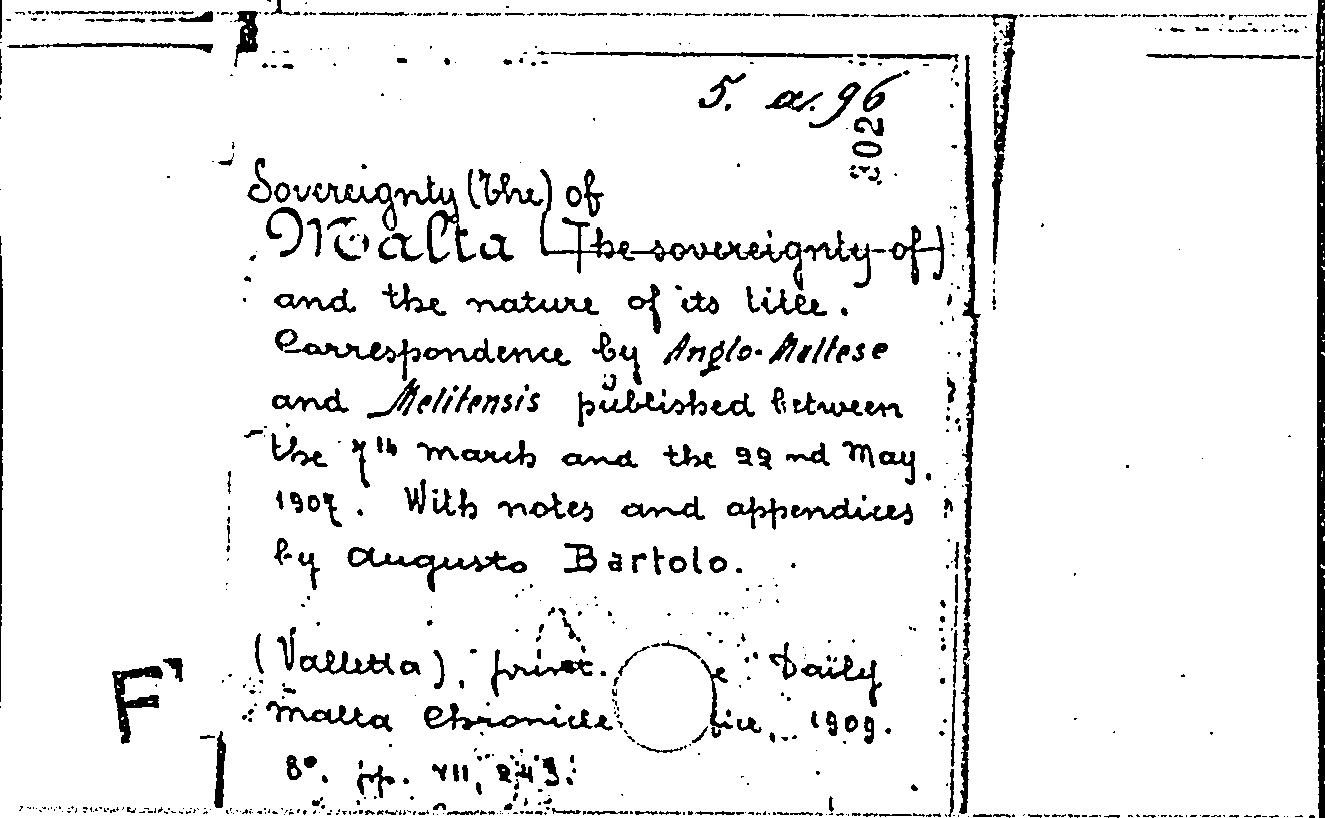 5. a. 96
302
Sovereignty (The) of
Malta (The sovereignty of)
and the nature of its title.
Correspondence by Anglo-Maltese
and Melitensis published between
the 7th march and the 22nd May
1907. With notes and appendices
by Augusto Bartolo.
(Valletta), print. Daily
Malta Chronicle fice, 1909.
8°. pp. VII, 243.
F